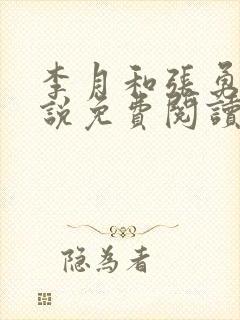 李月和張勇
說免費閱讀
隐为者